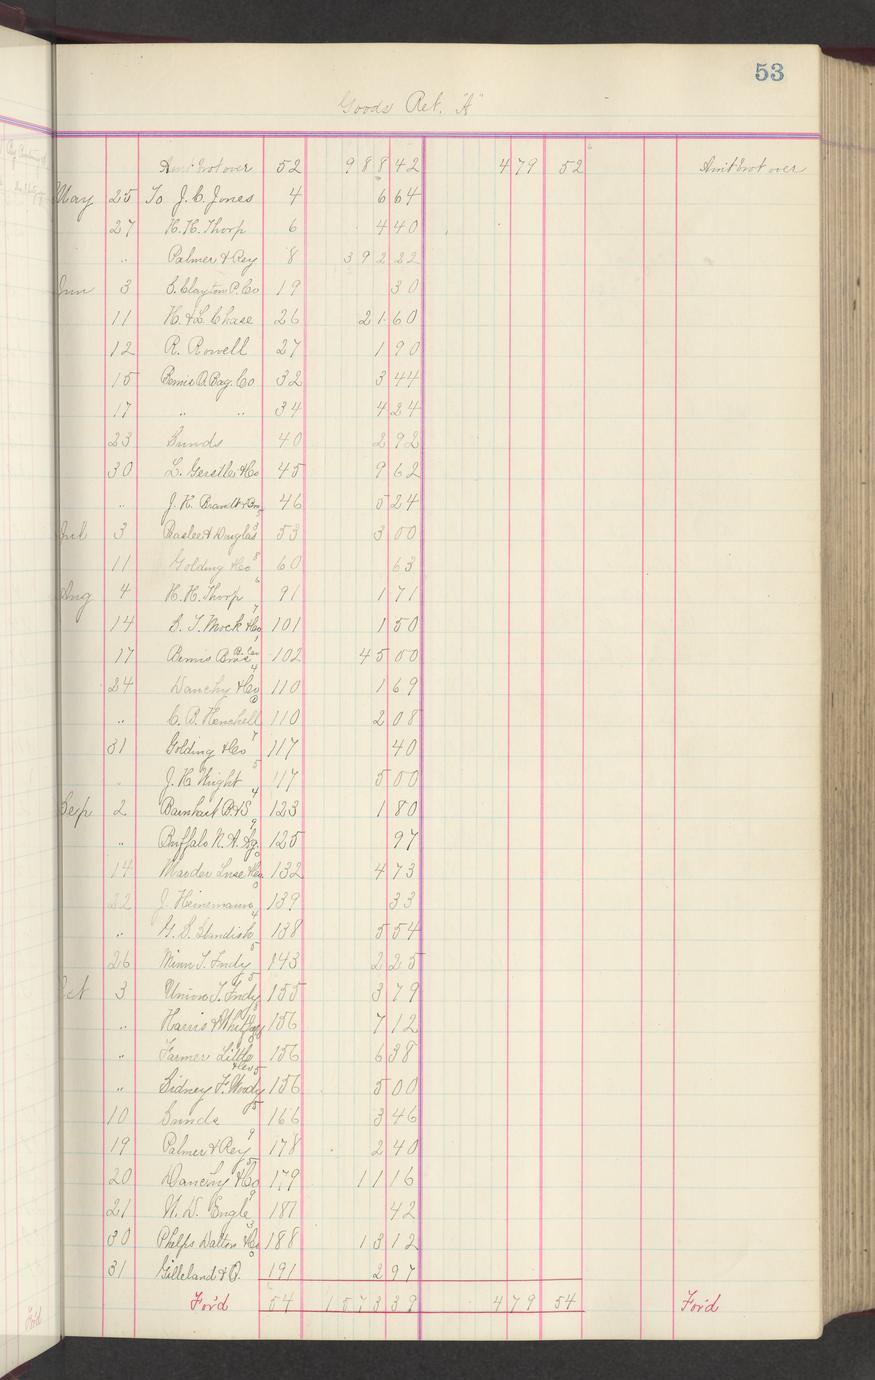 53
Goods Ret. "A"
Amt brot over 52 988 42 479 52 Amt brot over
May 25 To J. C. Jones 4 6 64
27 H. H. Thorp 6 4 40
" Palmer & Rey 8 392 22
Jun 3 S. Clayton P. Co 19 30
11 H. & L. Chase 26 21 60
12 R. Rowell 27 1 90
15 Bemis B. Bag. Co 32 3 44
17 " " 34 4 24
23 Sunds 40 2 92
30 L. Gerstle & Co 45 9 62
" J. H. Brandt & Bro 46 5 24
Jul 3 & Douglas 53 3 00
11 Golding & Co 60 63
Aug 4 H. H. Thorp 91 1 71
14 S. T. Mock & Co 101 1 50
17 Bemis Bros 102 45 00
24 Danchy & Co 110 1 69
" C. B. Henchell 110 2 08
31 Golding & Co 117 40
" J. H. Wright 117 5 00
Sep 2 Barnhart B. & S 123 1 80
" Buffalo N. A. 125 97
14 Marder Luse & Co. 132 4 73
22 J. Heinemann 139 33
" G. S. Standish 138 5 54
26 Minn T. Fndy 143 2 25
Oct 3 Union T. Fndy 155 3 79
" Harris & 156 7 12
" Farmer Little & Co 156 6 38
" Sidney F. Woody 156 5 00
10 Sunds 166 3 46
19 Palmer & Rey 178 2 40
20 Danchy & Co 179 11 16
21 N. D. Engle 187 42
30 Phelps Dalton & Co 188 13 12
31 Gilleland & O. 191 2 97
For'd 54 1573 39 479 54 For'd